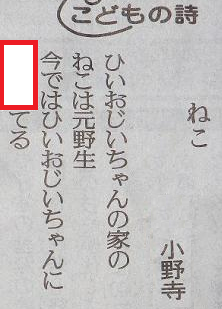 こどもの詩
ねこ
小野寺
ひいおじいちゃんの家の
ねこは元野生
今ではひいおじいちゃんに
てる